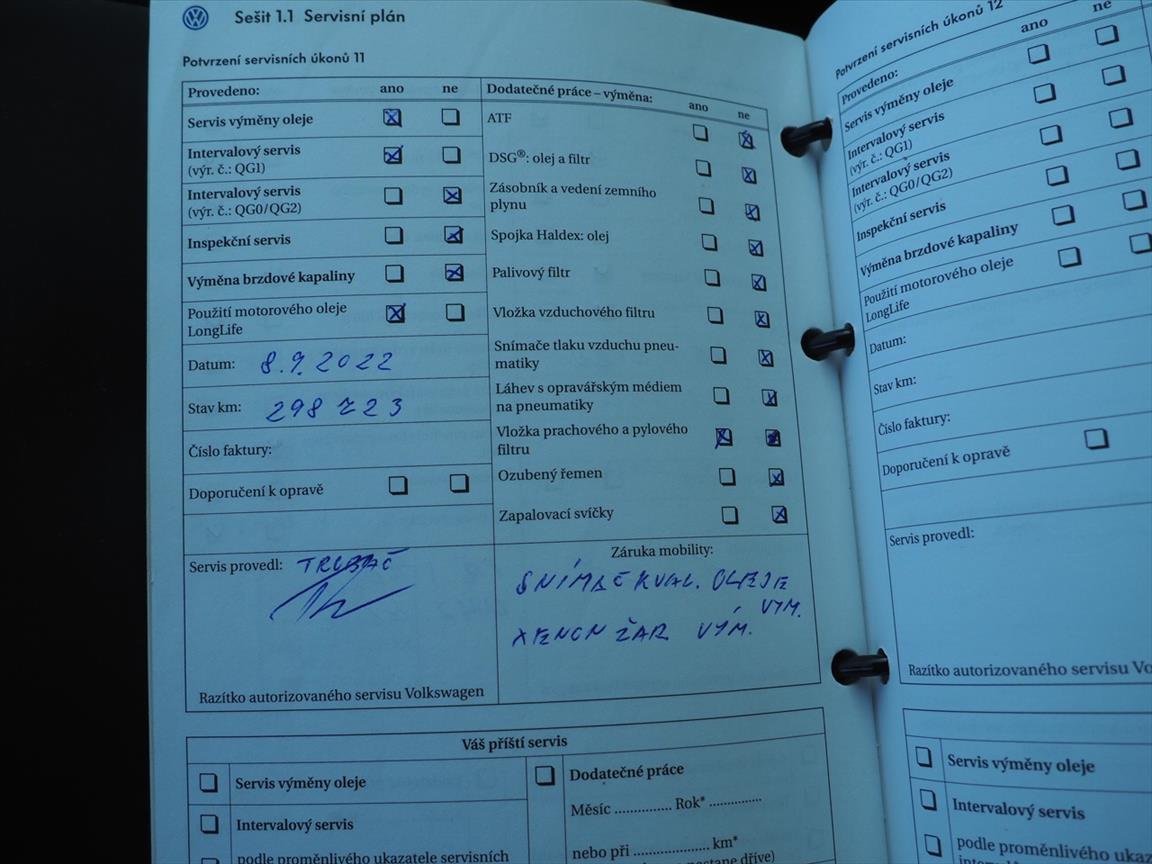 Sešit 1.1 Servisní plán
Potvrzení servisních úkonů 11
Provedeno: ano ne
Servis výměny oleje
Intervalový servis
(výr. č.: QG1)
Intervalový servis
(výr. č.: QG0/QG2)
Inspekční servis
Výměna brzdové kapaliny
Použití motorového oleje
LongLife
Datum: 8.9.2022
Stav km: 298 723
Číslo faktury:
Doporučení k opravě
Servis provedl:
Razítko autorizovaného servisu Volkswagen
Dodatečné práce – výměna: ano ne
ATF
DSG®: olej a filtr
Zásobník a vedení zemního
plynu
Spojka Haldex: olej
Palivový filtr
Vložka vzduchového filtru
Snímače tlaku vzduchu pneu-
matiky
Láhev s opravářským médiem
na pneumatiky
Vložka prachového a pylového
filtru
Ozubený řemen
Zapalovací svíčky
Záruka mobility:
SNÍMAČ KVAL. OLEJE
VYM.
XENON ŽAR. VÝM.
Váš příští servis
Servis výměny oleje
Intervalový servis
podle proměnlivého ukazatele servisních
Dodatečné práce
Měsíc .............. Rok* .............
nebo při ................... km*
nastane dříve)
Potvrzení servisních úkonů 12
Provedeno: ano ne
Servis výměny oleje
Intervalový servis
(výr. č.: QG1)
Intervalový servis
(výr. č.: QG0/QG2)
Inspekční servis
Výměna brzdové kapaliny
Použití motorového oleje
LongLife
Datum:
Stav km:
Číslo faktury:
Doporučení k opravě
Servis provedl:
Razítko autorizovaného servisu Vo
Servis výměny oleje
Intervalový servis
podle proměnlivého ukaza